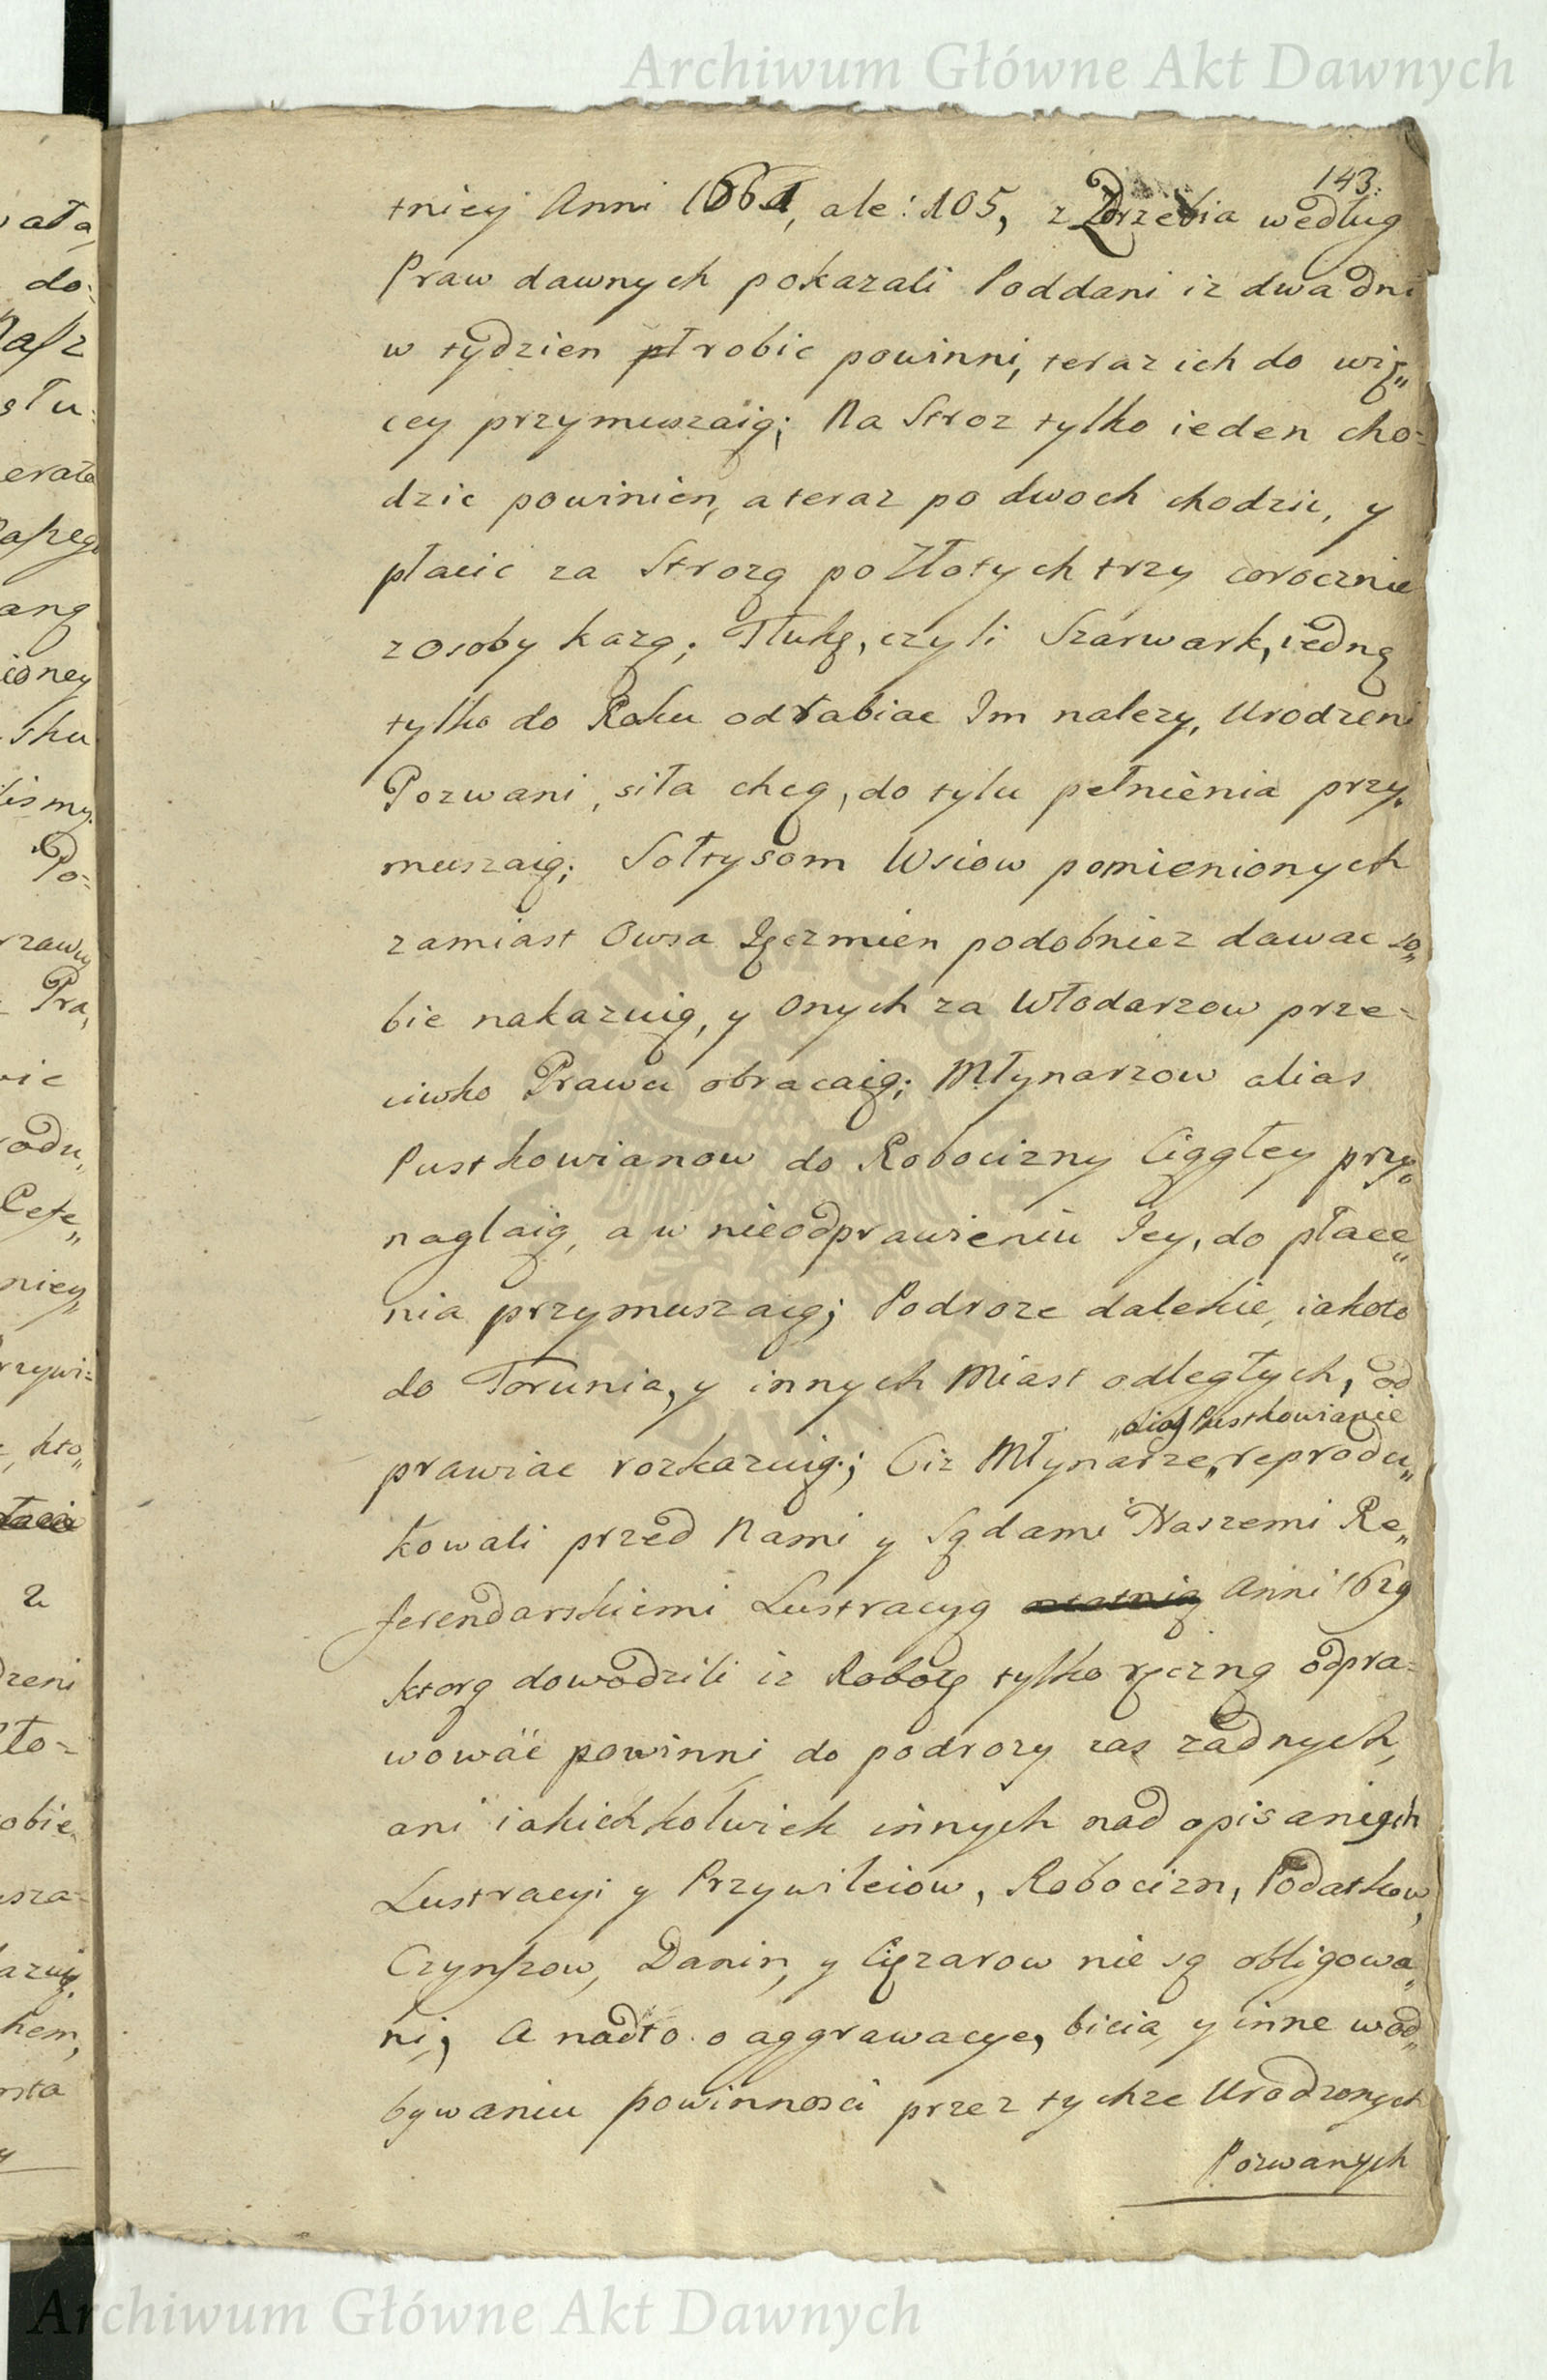 Archiwum Główne Akt Dawnych
143.
tniey Anni 1661, ale: 105, z Zdrzebia według
Praw dawnych pokazali Poddani iz dwa dni
w tydzien robic powinni, teraz ich do wię„
cey przymuszaią; Na Stroz tylko ieden cho-
dzic powinien, a teraz po dwoch chodzic, y
płacic za Strozą po Złotych trzy corocznie
z osoby kazą; Tłukę, czyli Szarwark, iedną
tylko do Roku odrabiac Im nalezy, Urodzeni
Pozwani, siła chcą, do tylu pełnienia przy„
muszaią; Sołtysom Wsiow pomienionych
zamiast Owsa Ięczmien podobniez dawac so„
bie nakazuią, y Onych za Włodarzow prze-
ciwko Prawu obracaią; Młynarzow alias
Pustkowianow do Robocizny Ciągłey przy„
naglaią, a w nieodprawieniu Iey, do płace„
nia przymuszaią; Podroze dalekie, iakoto
do Torunia, y innych Miast odległych, od
„alias Pustkowianie
prawiac rozkazuią; Ciz Młynarze„ reprodu„
kowali przed Nami y Sądami Naszemi Re„
ferendarskiemi Lustracyą Anni 1629
ktorą dowodzili iz Robotę tylko ręczną odpra-
wować powinni, do podrozy zas zadnych,
ani iakichkolwiek innych nad opisanięch
Lustracyi y Przywileiow, Robocizn, Podatkow,
Czynszow, Danin, y Cięzarow nie są obligowa„
ni, A nadto o aggrawacye, bicia, y inne w od„
bywaniu powinnosci przez tychze Urodzonych
Pozwanych
Archiwum Główne Akt Dawnych